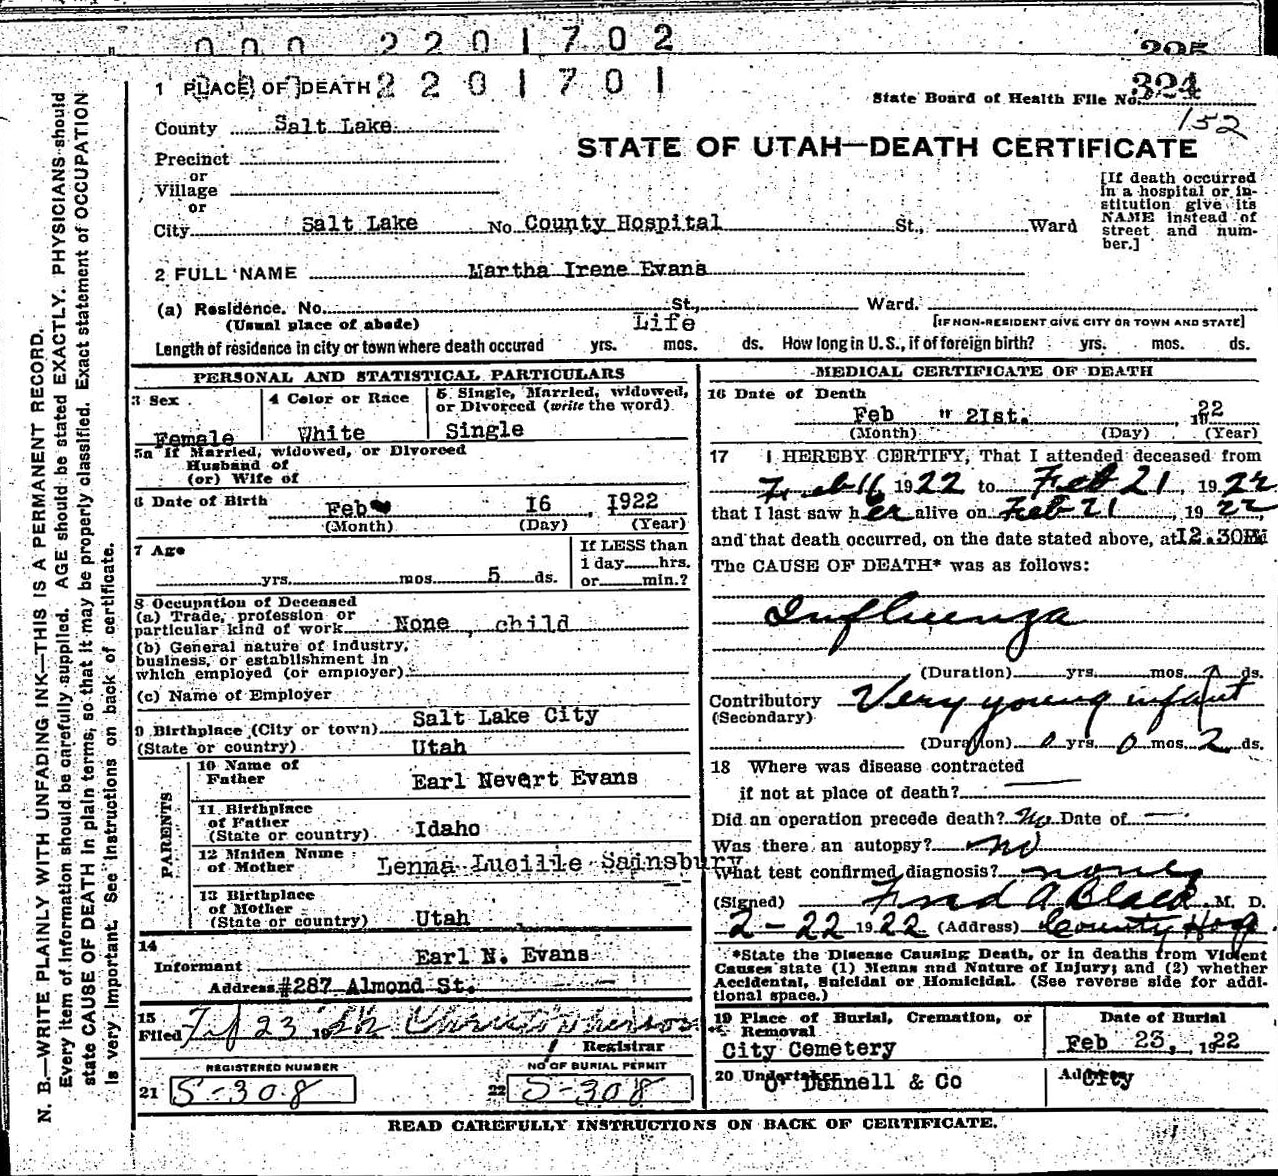 000 2201702
295
1 PLACE OF DEATH 2201701
324
State Board of Health File No.
152
County Salt Lake
STATE OF UTAH—DEATH CERTIFICATE
Precinct
or
Village
or
City Salt Lake No. County Hospital St., Ward
[If death occurred in a hospital or in-
stitution give its
NAME instead of
street and num-
ber.]
2 FULL NAME Martha Irene Evans
(a) Residence. No. St., Ward.
(Usual place of abode) Life [IF NON-RESIDENT GIVE CITY OR TOWN AND STATE]
Length of residence in city or town where death occured yrs. mos. ds. How long in U.S., if of foreign birth? yrs. mos. ds.
PERSONAL AND STATISTICAL PARTICULARS
3 Sex
Female
4 Color or Race
White
5 Single, Married, widowed,
or Divorced (write the word)
Single
5a If Married, widowed, or Divorced
Husband of
(or) Wife of
6 Date of Birth Feb 16, 1922
(Month) (Day) (Year)
7 Age
yrs. mos. 5 ds.
If LESS than
1 day hrs.
or min.?
8 Occupation of Deceased
(a) Trade, profession or
particular kind of work None, child
(b) General nature of industry,
business, or establishment in
which employed (or employer)
(c) Name of Employer
9 Birthplace (City or town) Salt Lake City
(State or country) Utah
PARENTS
10 Name of
Father Earl Nevert Evans
11 Birthplace
of Father
(State or country) Idaho
12 Maiden Name
of Mother Lenna Lucille Sainsbury
13 Birthplace
of Mother
(State or country) Utah
14
Informant Earl N. Evans
Address #287 Almond St.
15
Filed Feb 23 19 Christopherson
Registrar
REGISTERED NUMBER
21 S-308
NO OF BURIAL PERMIT
22 S-308
MEDICAL CERTIFICATE OF DEATH
16 Date of Death
Feb " 21st. , 1922
(Month) (Day) (Year)
17 I HEREBY CERTIFY, That I attended deceased from
Feb 16, 1922 to Feb 21, 1922
that I last saw her alive on Feb 21, 1922,
and that death occurred, on the date stated above, at 12.30PM
The CAUSE OF DEATH* was as follows:
Influenza
(Duration) yrs. mos. ds.
Contributory Very young infant
(Secondary)
(Duration) 0 yrs. 0 mos. 2 ds.
18 Where was disease contracted
if not at place of death?
Did an operation precede death? No Date of —
Was there an autopsy? no
What test confirmed diagnosis? none
(Signed) Fred A Black M. D.
2-22 1922 (Address) County Hosp
*State the Disease Causing Death, or in deaths from Violent
Causes state (1) Means and Nature of Injury; and (2) whether
Accidental, Suicidal or Homicidal. (See reverse side for addi-
tional space.)
19 Place of Burial, Cremation, or
Removal
City Cemetery
Date of Burial
Feb 23, 1922
20 Undertaker
O' Donnell & Co
Address
City
READ CAREFULLY INSTRUCTIONS ON BACK OF CERTIFICATE.
N. B.—WRITE PLAINLY WITH UNFADING INK—THIS IS A PERMANENT RECORD.
Every item of information should be carefully supplied. AGE should be stated EXACTLY. PHYSICIANS should
state CAUSE OF DEATH in plain terms, so that it may be properly classified. Exact statement of OCCUPATION
is very important. See instructions on back of certificate.